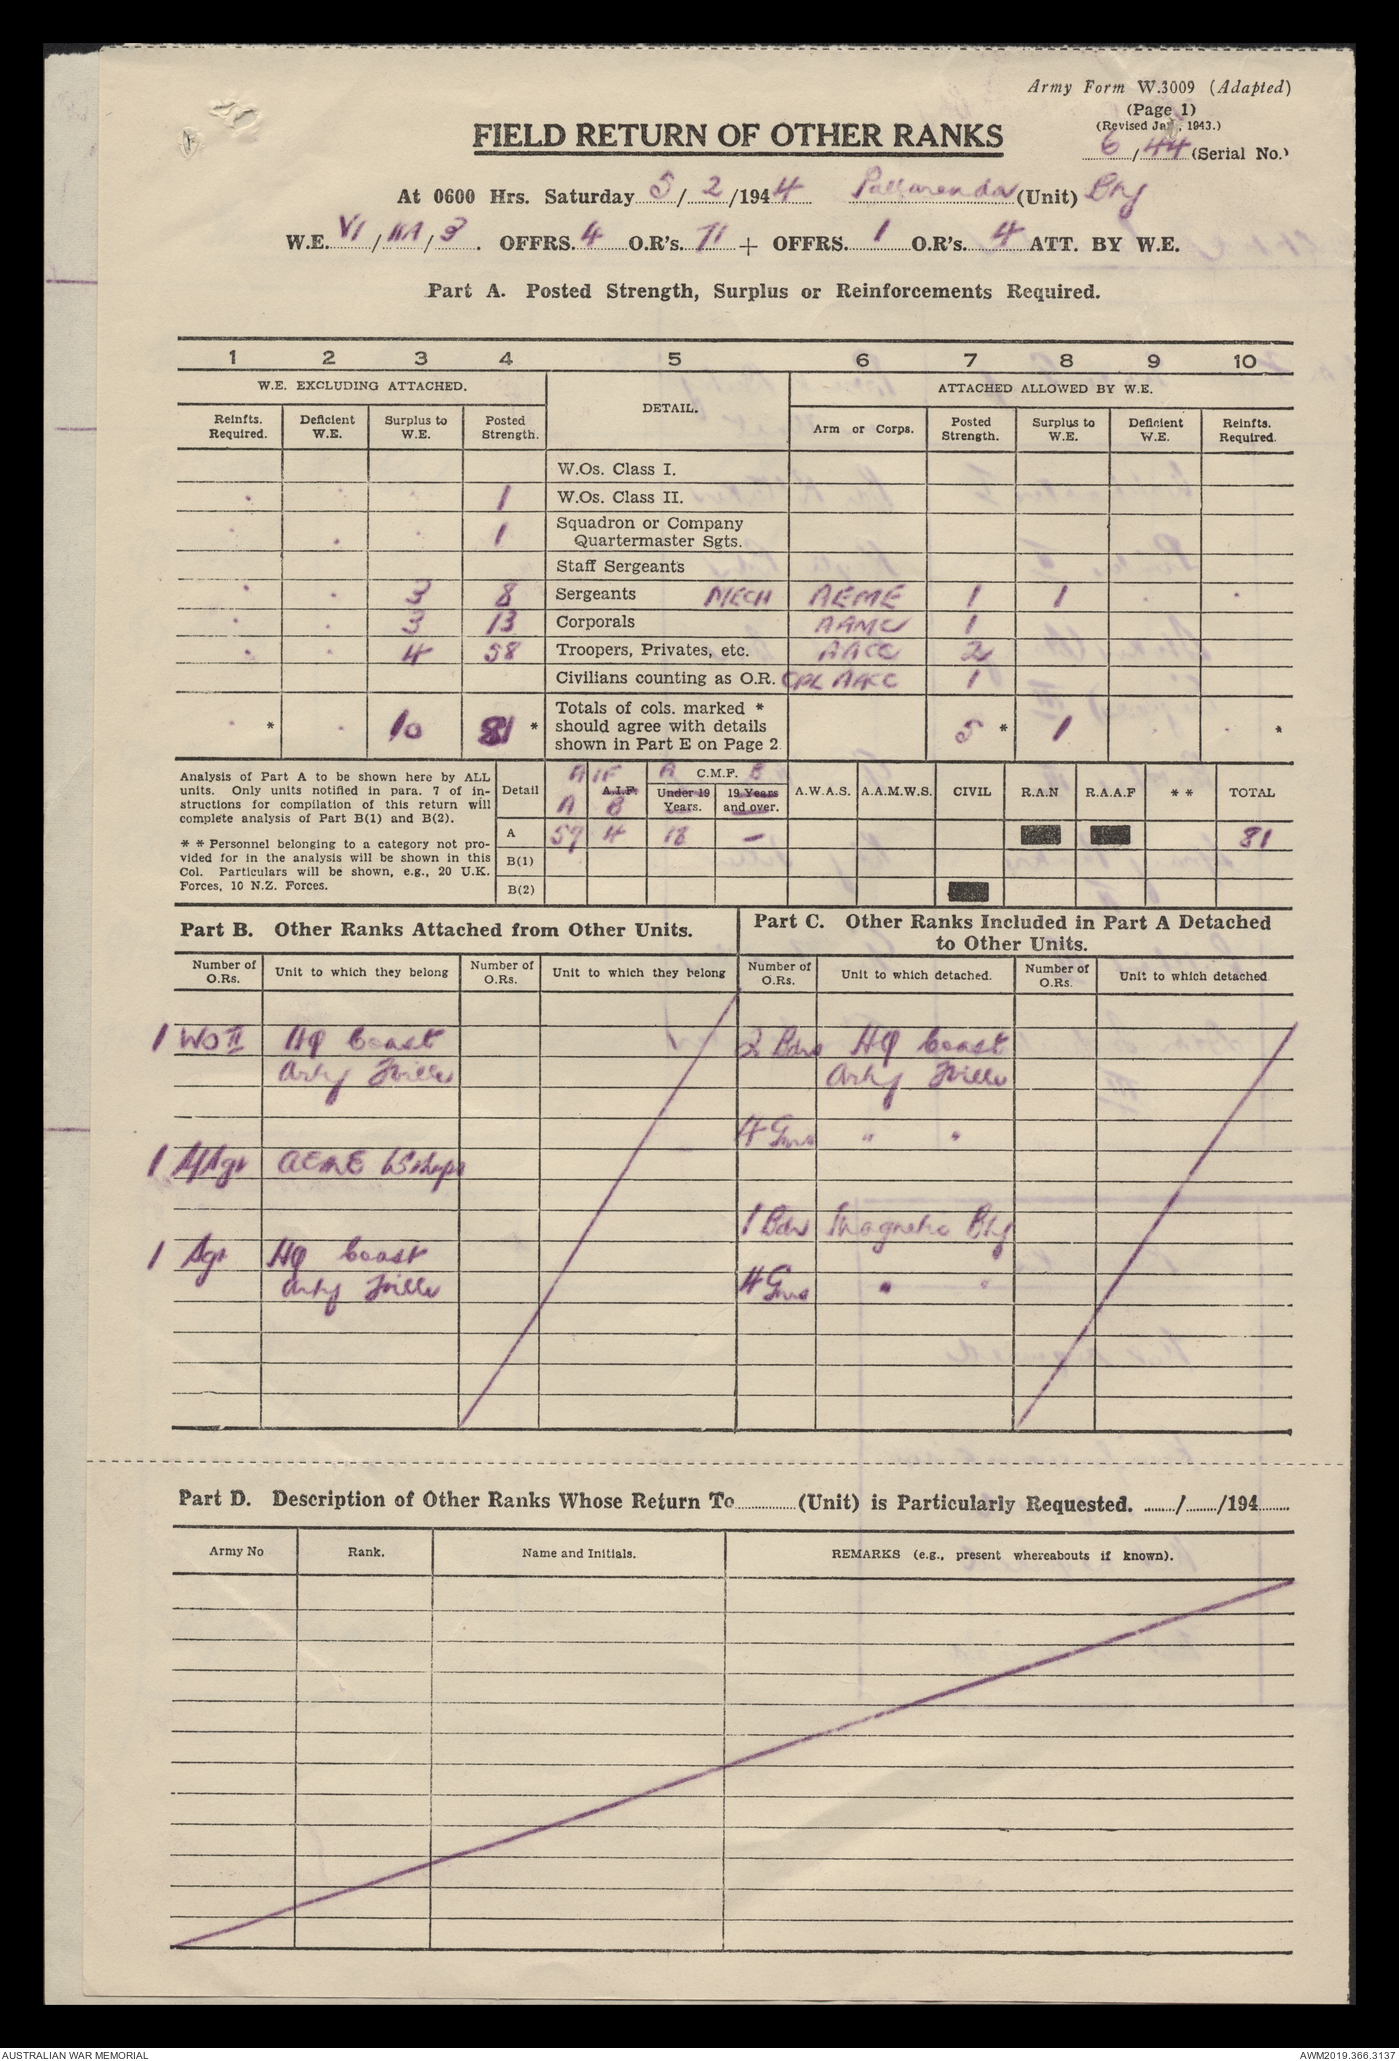 Army Form W.3009 (Adapted)
(Page 1)
(Revised Jan., 1943.)
FIELD RETURN OF OTHER RANKS
6/44 (Serial No.)
At 0600 Hrs. Saturday 5/2/1944 Pallarenda (Unit) Bty
W.E. VI/IIA/3. OFFRS. 4 O.R's. 71 + OFFRS. 1 O.R's. 4 ATT. BY W.E.
Part A. Posted Strength, Surplus or Reinforcements Required.
1 2 3 4 5 6 7 8 9 10
W.E. EXCLUDING ATTACHED. DETAIL. ATTACHED ALLOWED BY W.E.
Reinfts. Required. Deficient W.E. Surplus to W.E. Posted Strength. Arm or Corps. Posted Strength. Surplus to W.E. Deficient W.E. Reinfts. Required.
W.Os. Class I.
1 W.Os. Class II.
1 Squadron or Company Quartermaster Sgts.
Staff Sergeants
3 8 Sergeants MECH AEME 1 1
3 13 Corporals AAMC 1
4 58 Troopers, Privates, etc. AACC 2
Civilians counting as O.R. CPL AACC 1
* 10 81 * Totals of cols. marked * should agree with details shown in Part E on Page 2. 5 * 1 *
Analysis of Part A to be shown here by ALL units. Only units notified in para. 7 of instructions for compilation of this return will complete analysis of Part B(1) and B(2).
* * Personnel belonging to a category not provided for in the analysis will be shown in this Col. Particulars will be shown, e.g., 20 U.K. Forces, 10 N.Z. Forces.
Detail AIF A A.I.F. B A C.M.F. B Under 19 Years. 19 Years and over. A.W.A.S. A.A.M.W.S. CIVIL R.A.N R.A.A.F * * TOTAL
A 59 4 18 — 81
B(1)
B(2)
Part B. Other Ranks Attached from Other Units.
Part C. Other Ranks Included in Part A Detached to Other Units.
Number of O.Rs. Unit to which they belong Number of O.Rs. Unit to which they belong Number of O.Rs. Unit to which detached. Number of O.Rs. Unit to which detached
1 WO II HQ Coast 2 Bdrs HQ Coast
Arty Tville Arty Tville
4 Gnrs " "
1 S/Sgt AEME W'shops
1 Bdr Magnetic Bty
1 Sgt HQ Coast
Arty Tville 4 Gnrs " "
Part D. Description of Other Ranks Whose Return To (Unit) is Particularly Requested. / /194
Army No Rank. Name and Initials. REMARKS (e.g., present whereabouts if known).
AUSTRALIAN WAR MEMORIAL AWM2019.366.3137